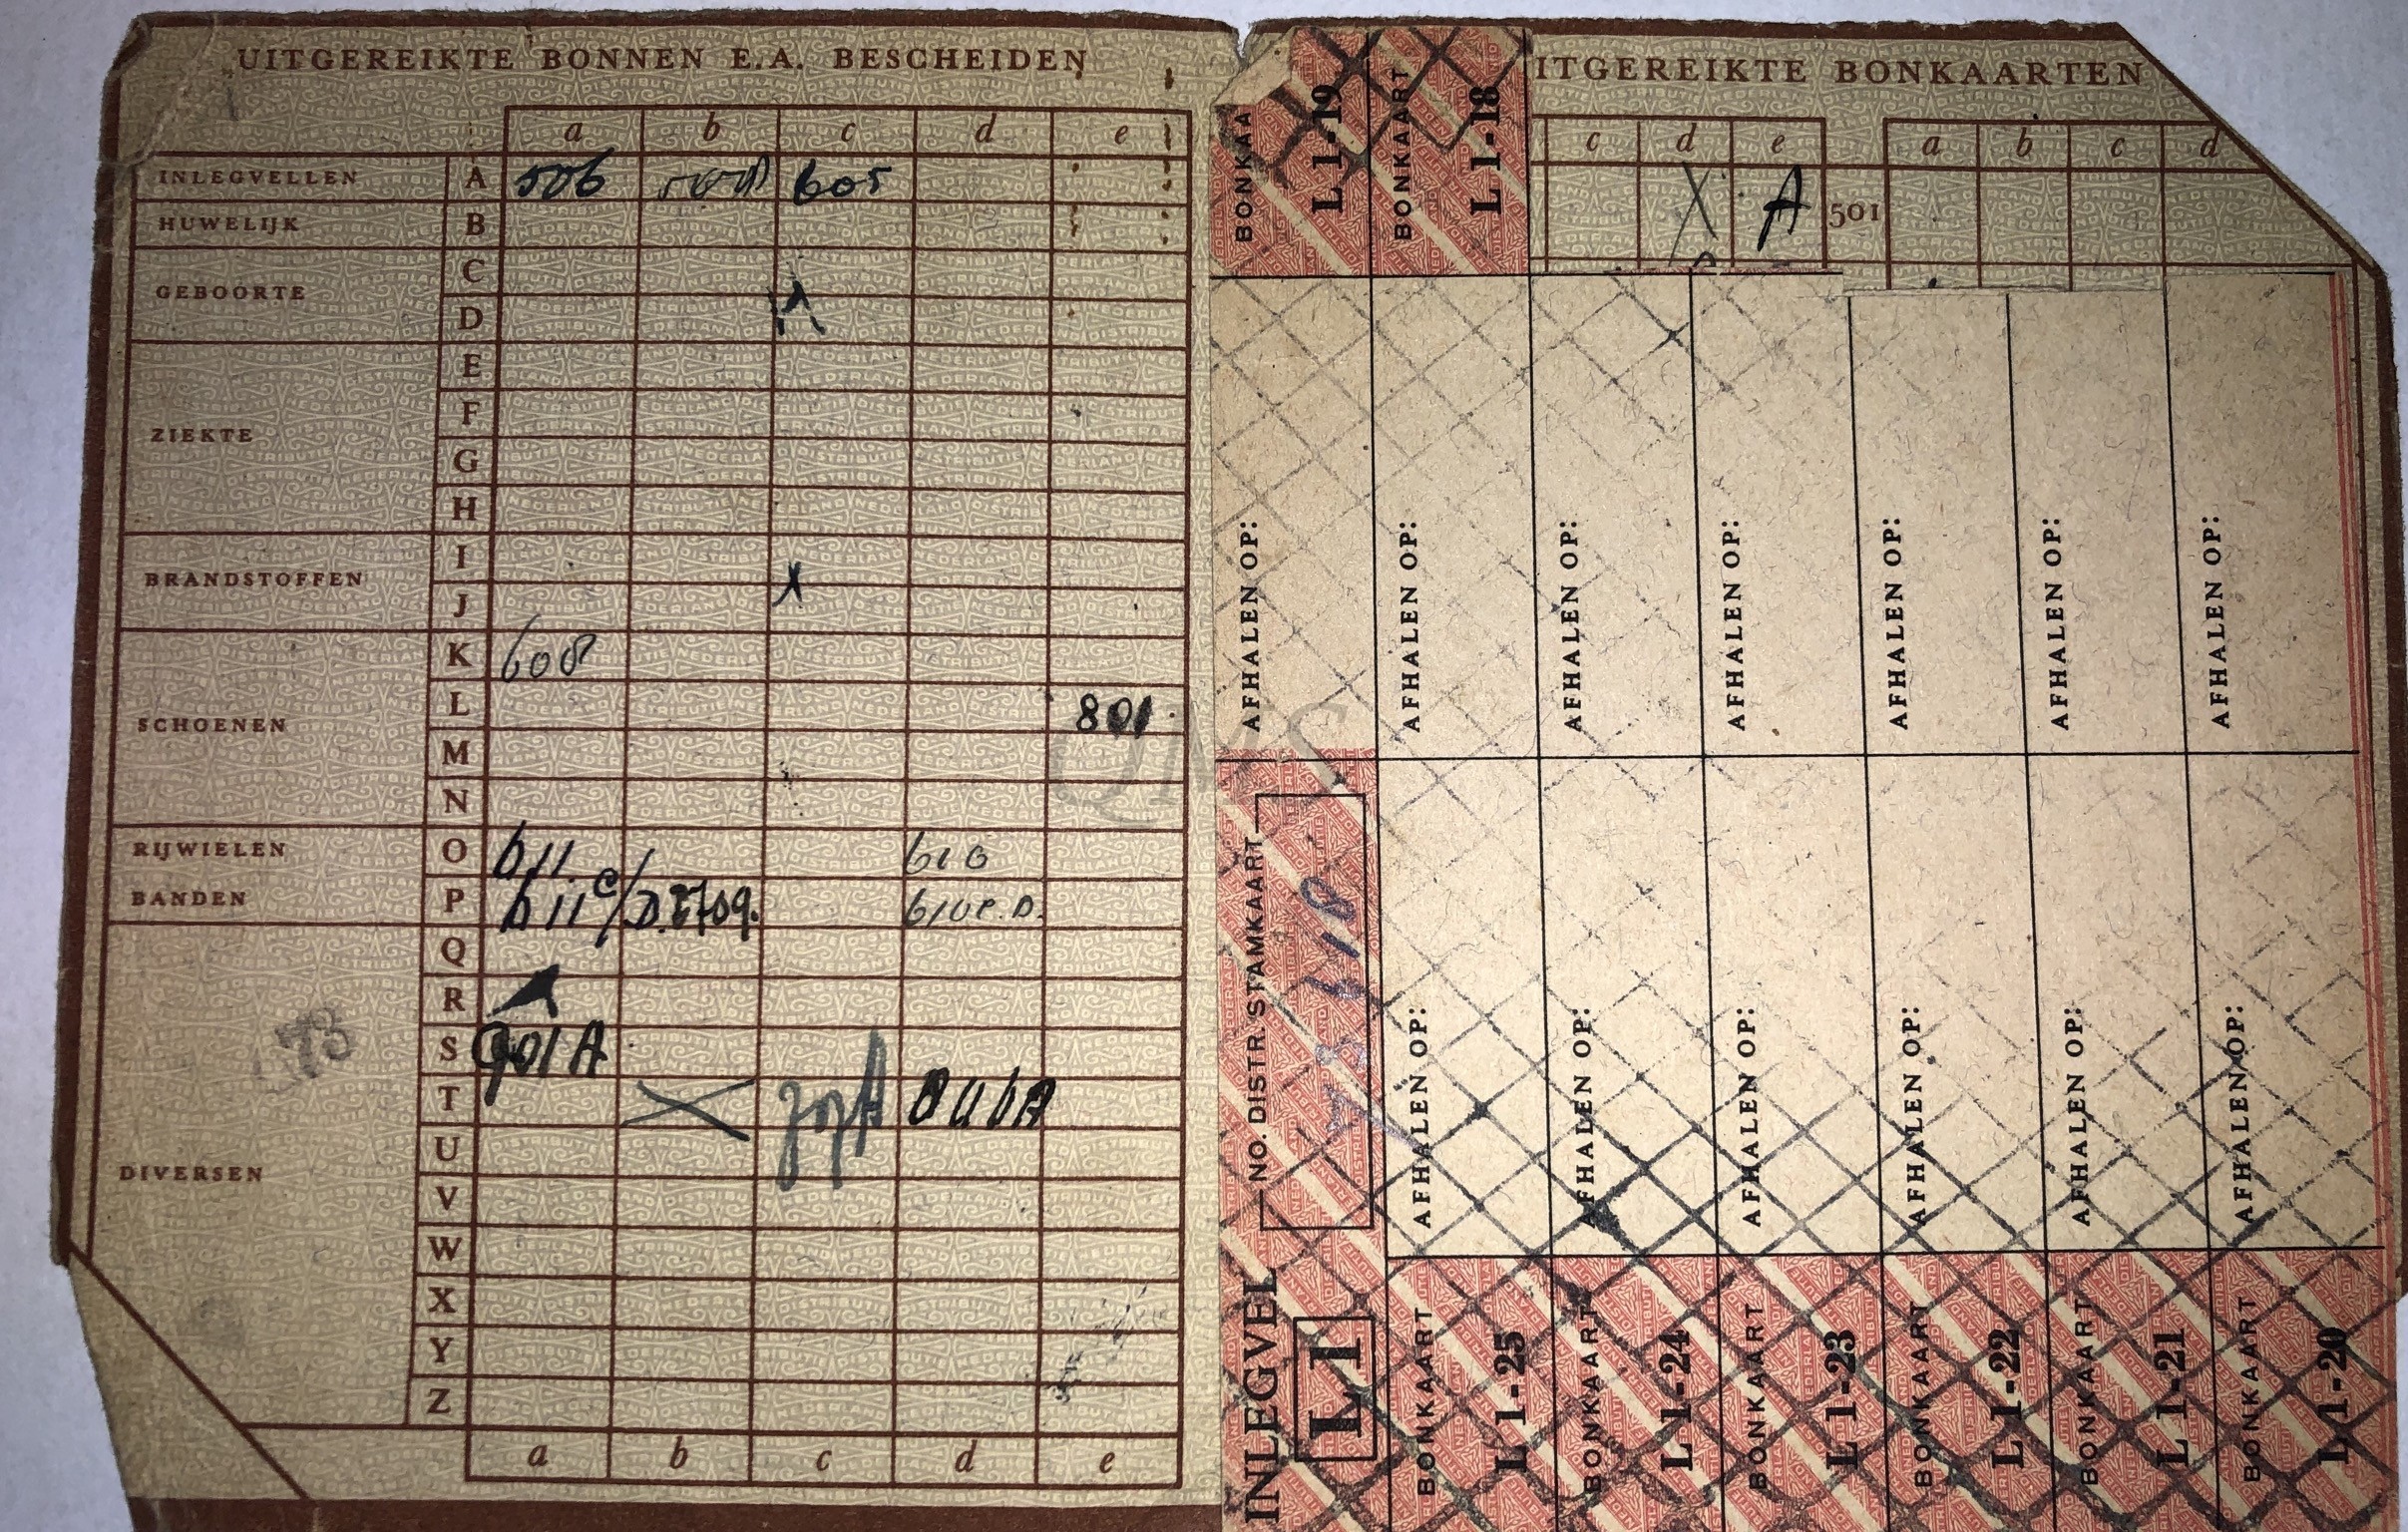 UITGEREIKTE BONNEN E.A. BESCHEIDEN
a b c d e
INLEGVELLEN A 506 605
HUWELIJK B
GEBOORTE C
D
ZIEKTE E
F
G
H
BRANDSTOFFEN I
J X
SCHOENEN K 608
L 801
M
N
RIJWIELEN O 611 610
BANDEN P 611
DIVERSEN Q
R
S 901 A
T X
U
V
W
X
Y
Z
a b c d e
673
QMC
ITGEREIKTE BONKAARTEN
c d e a b c d
X A 501
BONKAA L 1-19
BONKAART L 1-18
AFHALEN OP:
AFHALEN OP:
AFHALEN OP:
AFHALEN OP:
AFHALEN OP:
AFHALEN OP:
AFHALEN OP:
NO. DISTR. STAMKAART
AFHALEN OP:
AFHALEN OP:
AFHALEN OP:
AFHALEN OP:
AFHALEN OP:
AFHALEN OP:
INLEGVEL L1
BONKAART L 1-25
BONKAART L 1-24
BONKAART L 1-23
BONKAART L 1-22
BONKAART L 1-21
BONKAART L 1-20